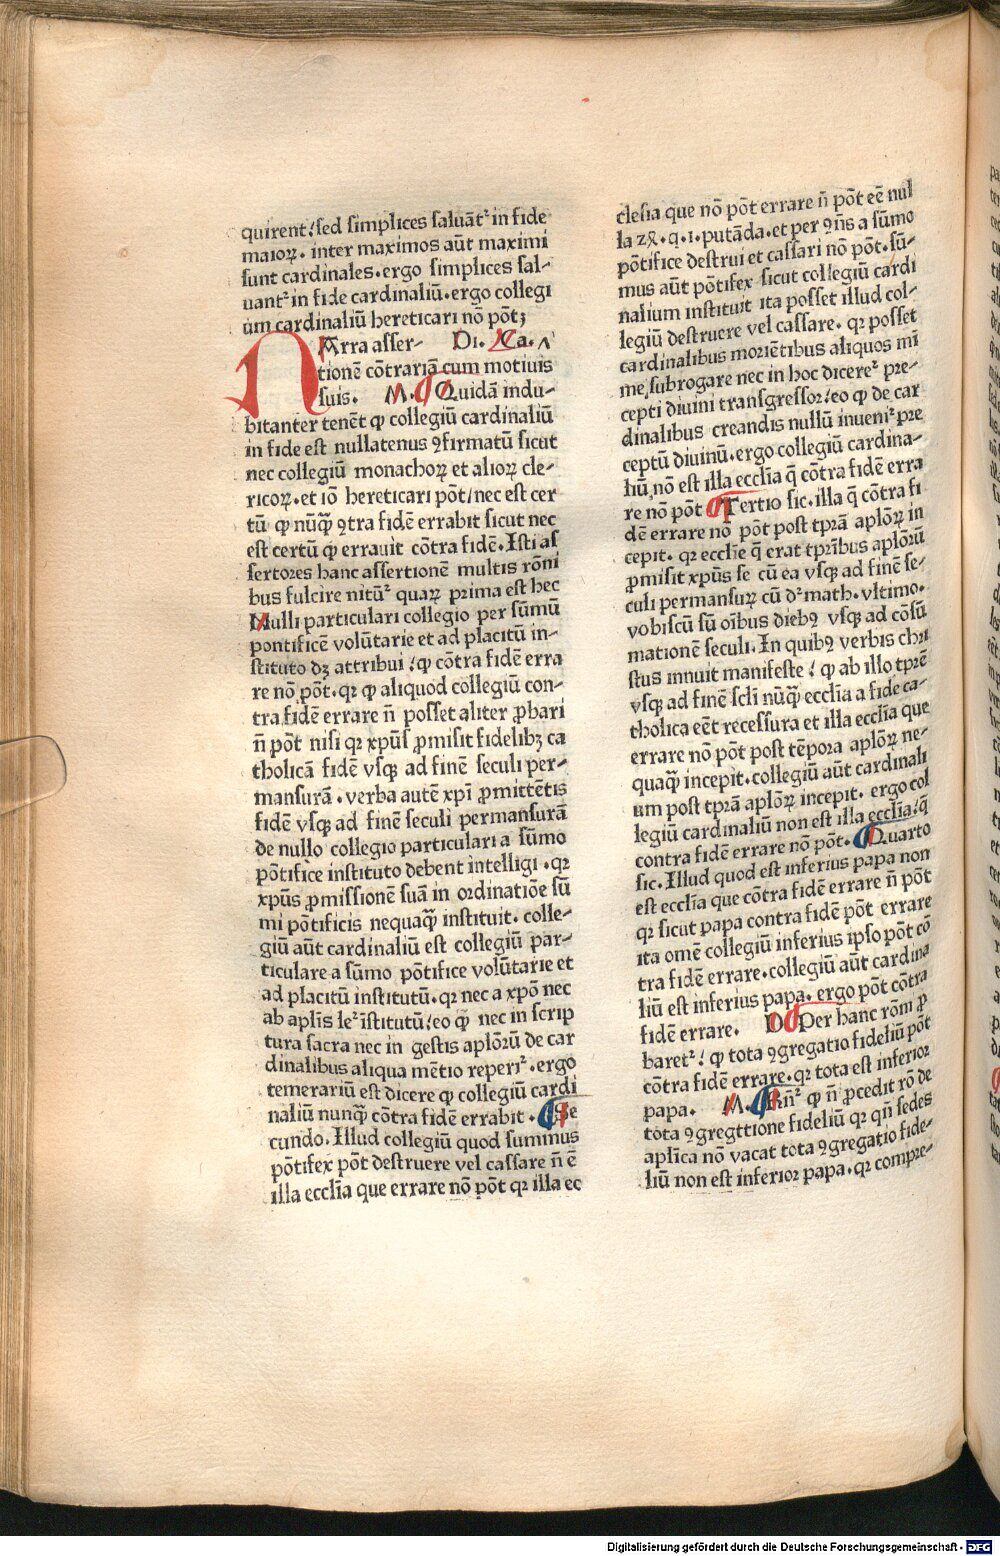 quirent/sed simplices saluãt᷑ in fide
maioꝝ. inter maximos aũt maximi
sunt cardinales.ergo simplices sal-
uant᷑ in fide cardinaliũ.ergo collegi
um cardinaliũ hereticari nõ põtꝫ
NArra asser- Di. Ca.
tionẽ cõtrariã cum motiuis
suis. M. Quidã indu-
bitanter tenẽt ꝙ collegiũ cardinaliũ
in fide est nullatenus ꝯfirmatũ sicut
nec collegiũ monachoꝝ et alioꝝ cle-
ricoꝝ.et iõ hereticari põt/nec est cer
tũ ꝙ nũꝙ̃ ꝯtra fidẽ errabit sicut nec
est certũ ꝙ erraũit cõtra fidẽ.Isti as
sertores hanc assertionẽ multis rõni
bus fulcire nitũt᷑ quaꝝ prima est hec
Nulli particulari collegio per sũmũ
pontificẽ volũtarie et ad placitũ in-
stituto dꝫ attribui/ꝙ cõtra fidẽ erra
re nõ põt.qꝛ ꝙ aliquod collegiũ con-
tra fidẽ errare ñ posset aliter ꝓbari
ñ põt nisi qꝛ xpũs ꝓmisit fidelibꝫ ca
tholicã fidẽ vsqꝫ ad finẽ seculi per-
mansurã.verba autẽ xpĩ ꝓmittẽtis
fidẽ vsqꝫ ad finẽ seculi permansurã
de nullo collegio particulari a sũmo
põtifice instituto debent intelligi.qꝛ
xpũs ꝓmissionẽ suã in ordinatiõe sũ
mi põtificis nequaꝙ̃ instituit.colle-
giũ aũt cardinaliũ est collegiũ par-
ticulare a sũmo põtifice volũtarie et
ad placitũ institutũ.qꝛ nec a xpõ nec
ab aplĩs le᷑ ĩstitutũ/eo ꝙ nec in scrip
tura sacra nec in gestis aplõrũ de car
dinalibus aliqua mẽtio reperit᷑.ergo
temerariũ est dicere ꝙ collegiũ cardi
naliũ nunꝙ̃ cõtra fidẽ errabit. Se
cundo.Illud collegiũ quod summus
põtifex põt destruere vel cassare ñ ẽ
illa ecclĩa que errare nõ põt qꝛ illa ec
clesia que nõ põt errare ñ põt eẽ nul
la 24.q.1.putãda.et per ꝯñs a sũmo
põtifice destrui et cassari nõ põt.sũ-
mus aũt põtifex sicut collegiũ cardi
nalium instituit ita posset illud col-
legiũ destruere vel cassare.qꝛ posset
cardinalibus moriẽtibus aliquos mi
me subrogare nec in hoc diceret᷑ pre-
cepti diuini transgressor/eo ꝙ de car
dinalibus creandis nullũ inuenit᷑ pre
ceptũ diuinũ.ergo collegiũ cardina-
liũ nõ est illa ecclĩa q̃ cõtra fidẽ erra
re nõ põt Tertio sic.illa q̃ cõtra fi
dẽ errare nõ põt post tpꝛã aplõꝝ in
cepit.qꝛ ecclĩe q̃ erat tpꝛĩbus aplõrũ
ꝓmisit xpũs se cũ ea vsqꝫ ad finẽ se-
culi permansuꝝ cũ d᷑ math.vltimo.
vobiscũ sũ oĩbus diebꝯ vsqꝫ ad cõsũ
mationẽ seculi.In quibꝯ verbis chri
stus innuit manifeste/ꝙ ab illo tpꝛẽ
vsqꝫ ad finẽ sclĩ nũꝙ̃ ecclĩa a fide ca-
tholica eẽt recessura et illa ecclĩa que
errare nõ põt post tẽpora aplõꝝ ne-
quaꝙ̃ incepit.collegiũ aũt cardinali
um post tpꝛã aplõꝝ incepit. ergo col
legiũ cardinaliũ non est illa ecclĩa/q̃
contra fidẽ errare nõ põt. Quarto
sic.Illud quod est inferius papa non
est ecclĩa que cõtra fidẽ errare ñ põt
qꝛ sicut papa contra fidẽ põt errare
ita omẽ collegiũ inferius ipso põt cõ
tra fidẽ errare.collegiũ aũt cardina
liũ est inferius papa.ergo põt cõtra
fidẽ errare. D Per hanc rõm ꝓ
baret᷑/ꝙ tota ꝯgregatio fideliũ põt
cõtra fidẽ errare.qꝛ tota est inferior
papa. M. Rñt᷑ ꝙ ñ ꝓcedit rõ de
tota ꝯgregttione fideliũ qꝛ qñ sedes
aplĩca nõ vacat tota ꝯgregatio fide-
liũ non est inferior papa.qꝛ compre-
Digitalisierung gefördert durch die Deutsche Forschungsgemeinschaft - DFG